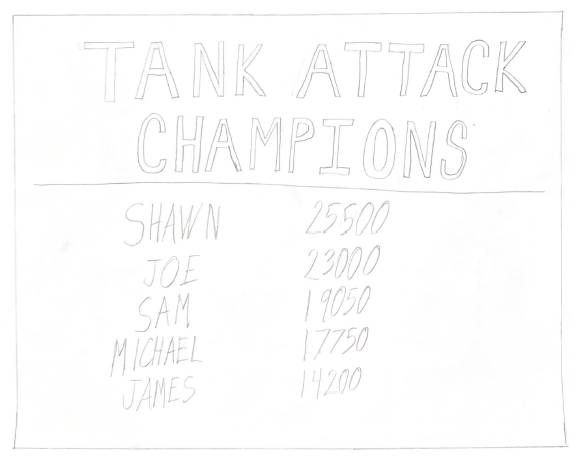 TANK ATTACK
CHAMPIONS
SHAWN 25500
JOE 23000
SAM 19050
MICHAEL 17750
JAMES 14200